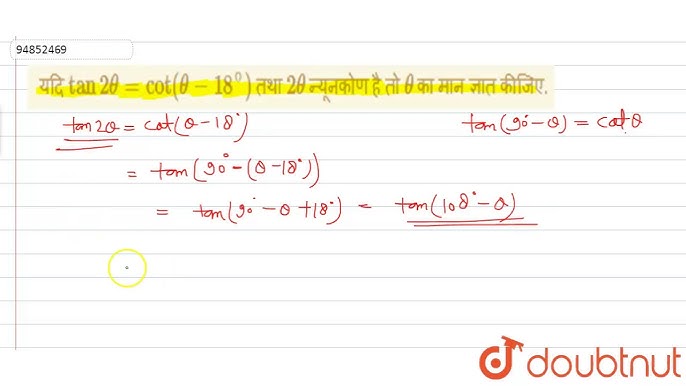 94852469
यदि tan 2θ = cot(θ − 18°) तथा 2θ न्यूनकोण है तो θ का मान ज्ञात कीजिए.
tan 2θ = cot(θ-18°)
tan(90°-θ) = cot θ
= tan(90°-(θ-18°))
= tan(90°-θ+18°) = tan(108°-θ)
doubtnut